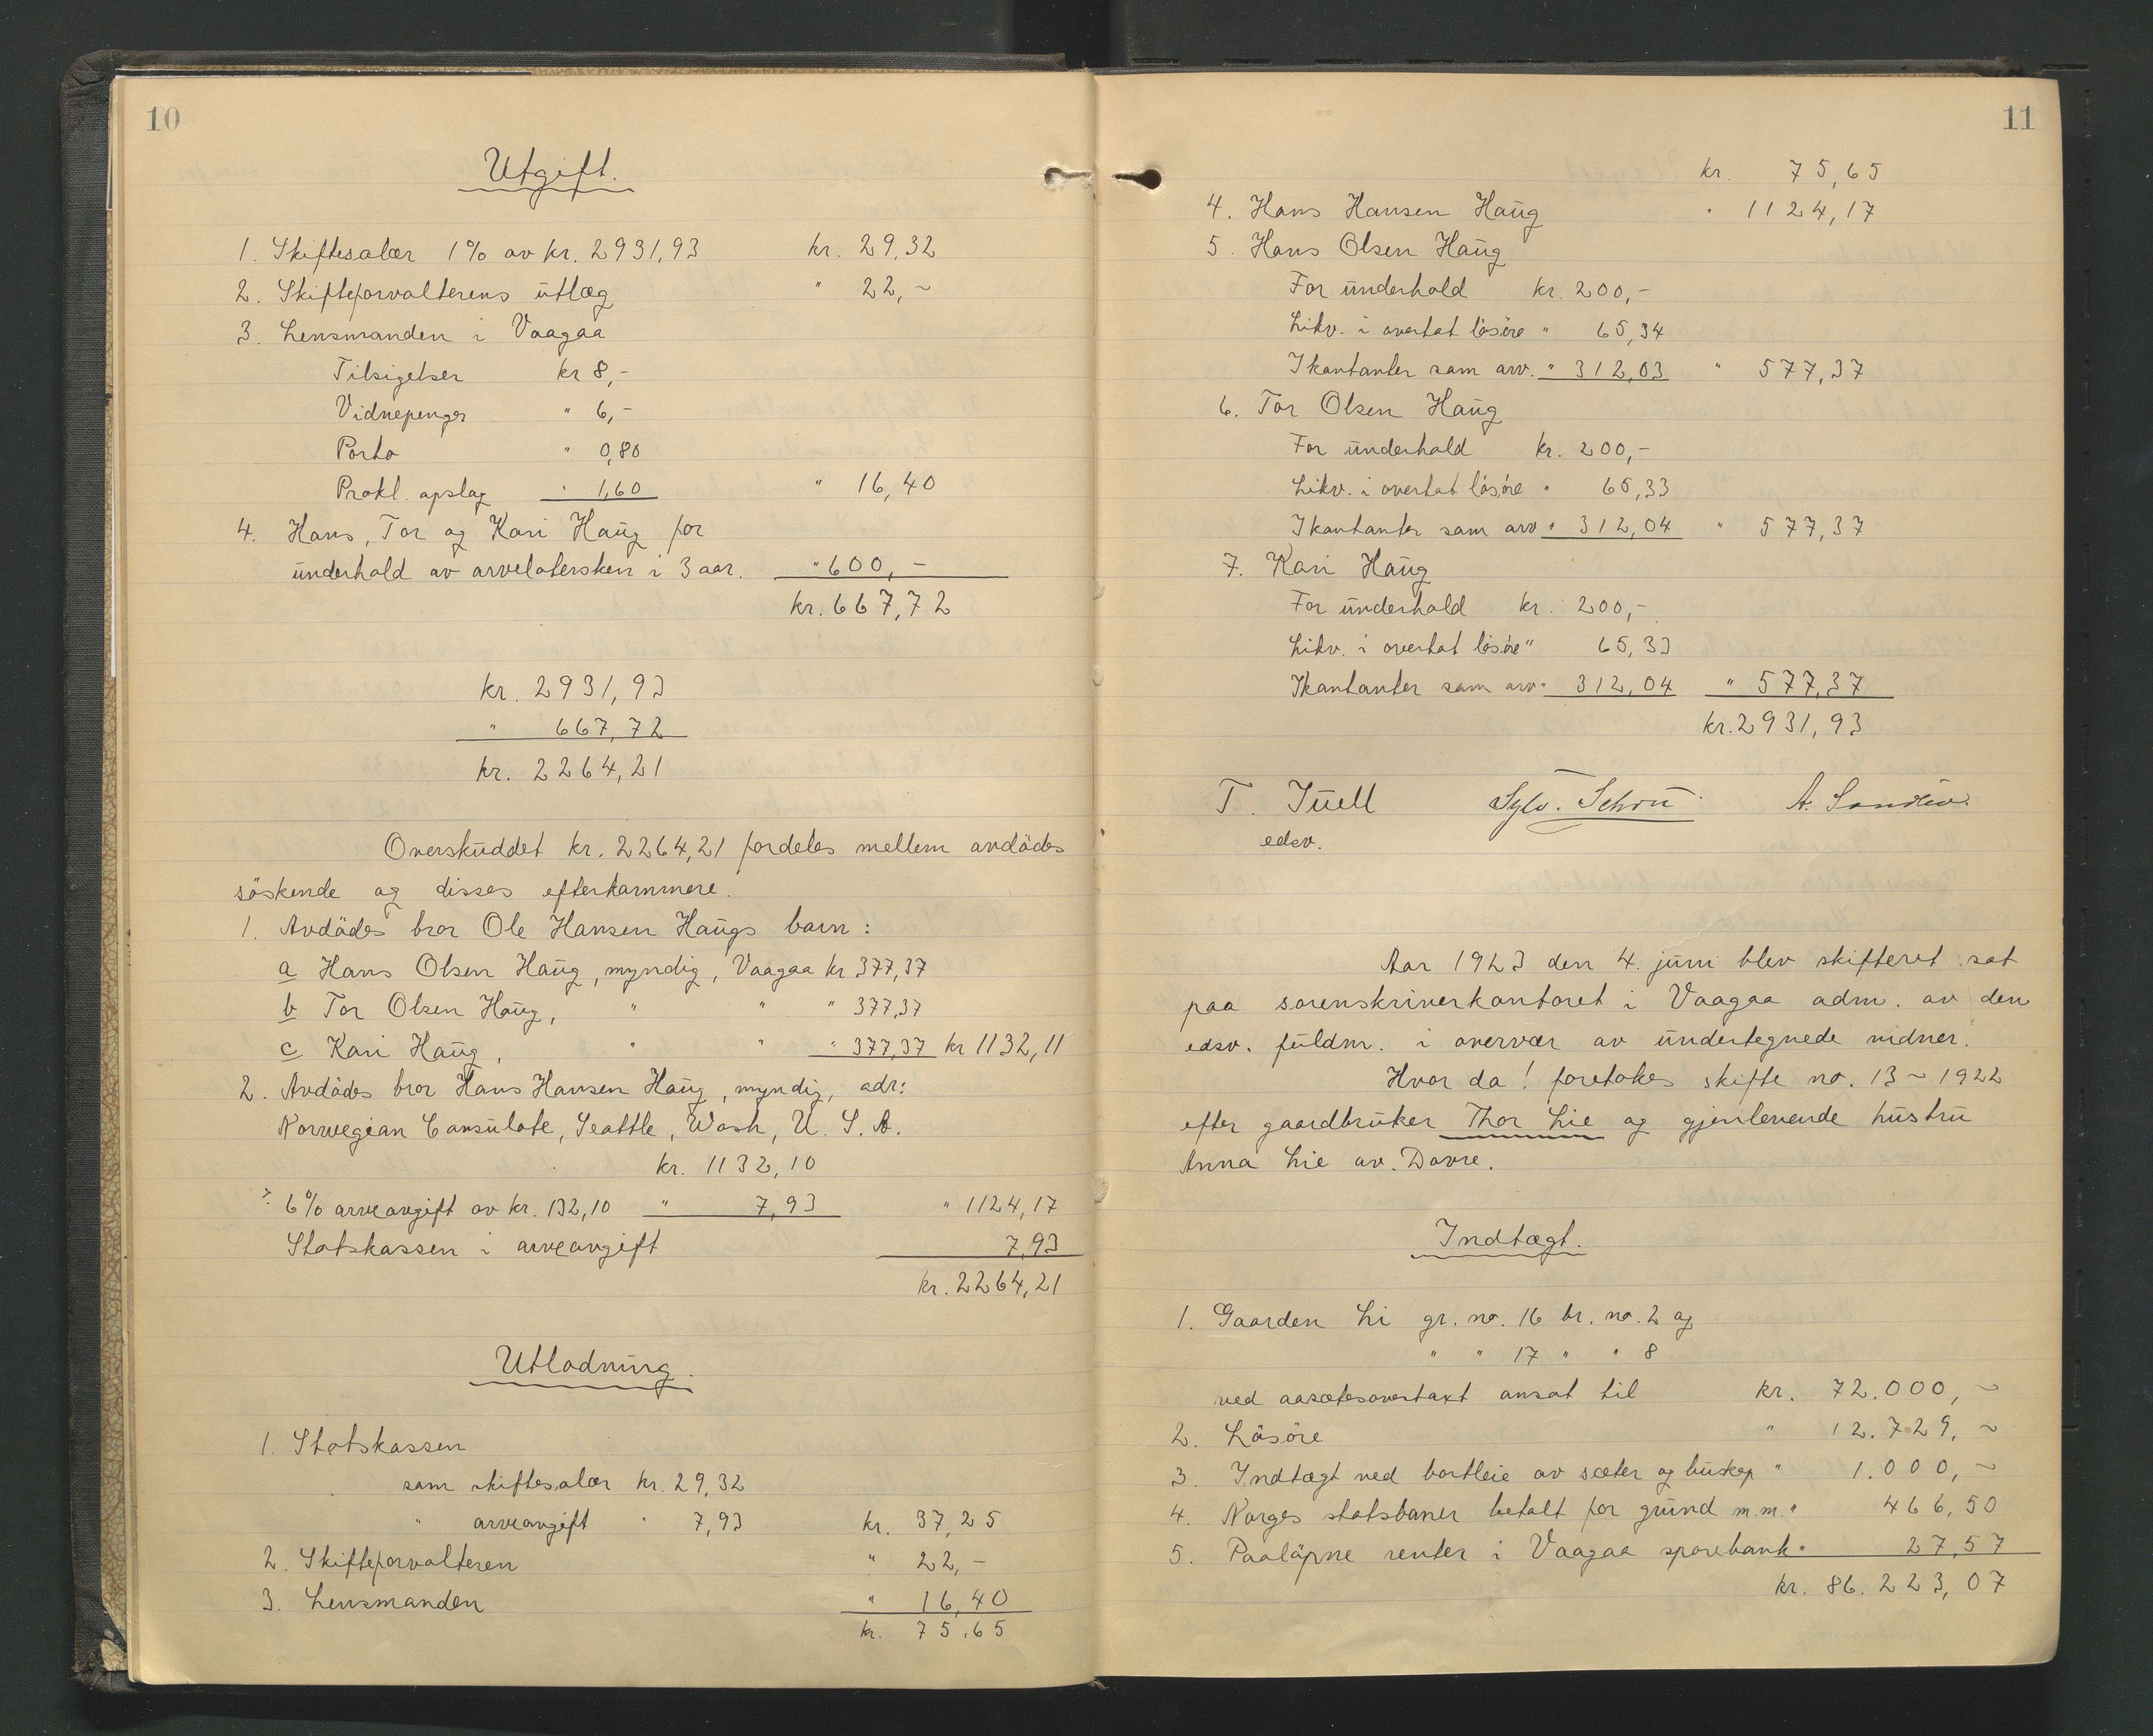 10
Utgift.
1. Skiftesalær 1% av kr. 2931,93 kr. 29,32
2. Skifteforvalterens utlæg " 22,~
3. Lensmanden i Vaagaa
Tilsigelser kr 8,-
Vidnepenger " 6,-
Porto " 0,80
Prokl. opslag " 1,60 " 16,40
4. Hans, Tor og Kari Haug for
underhold av arvelatersken i 3 aar. " 600,-
kr. 667,72
kr. 2931,93
" 667,72
kr. 2264,21
Overskuddet kr. 2264,21 fordeles mellem avdödes
söskende og disses efterkommere.
1. Avdödes bror Ole Hansen Haugs barn:
a Hans Olsen Haug, myndig, Vaagaa kr 377,37
b Tor Olsen Haug, " " " 377,37
c Kari Haug, " " " 377,37 kr 1132,11
2. Avdödes bror Hans Hansen Haug, myndig, adr:
Norwegian Consulate, Seattle, Wash, U. S. A.
kr. 1132,10
÷ 6% arveavgift av kr. 132,10 " 7,93 " 1124,17
Statskassen i arveavgift 7,93
kr. 2264,21
Utlodning.
1. Statskassen
som skiftesalær kr. 29,32
" arveavgift " 7,93 kr. 37,25
2. Skifteforvalteren " 22,-
3. Lensmanden " 16,40
kr. 75,65
11
kr. 75,65
4. Hans Hansen Haug " 1124,17
5. Hans Olsen Haug
For underhold kr. 200,-
Likv. i overtat lösöre " 65,34
I kontanter som arv. " 312,03 " 577,37
6. Tor Olsen Haug
For underhold kr. 200,-
Likv. i overtat lösöre " 65,33
I kontanter som arv " 312,04 " 577,37
7. Kari Haug
For underhold kr. 200,-
Likv. i overtat lösöre " 65,33
I kontanter som arv " 312,04 " 577,37
kr. 2931,93
T. Juell Sylv. Schou A.
edsv.
Aar 1923 den 4. juni blev skifteret sat
paa sorenskriverkontoret i Vaagaa adm. av den
edsv. fuldm. i overvær av undertegnede vidner.
Hvor da! foretokes skifte no. 13~1922
efter gaardbruker Thor Lie og gjenlevende hustru
Anna Lie av Dovre.
Indtægt.
1. Gaarden Li gr. no. 16 br. no. 2 og
" " 17 " " 8
ved aasætesovertaxt ansat til kr. 72.000,~
2. Lösöre " 12.729,~
3. Indtægt ved bortleie av sæter og buskap " 1.000,~
4. Norges statsbaner betalt for grund m.m. " 466,50
5. Paaløpne renter i Vaagaa sparebank " 27,57
kr. 86.223,07